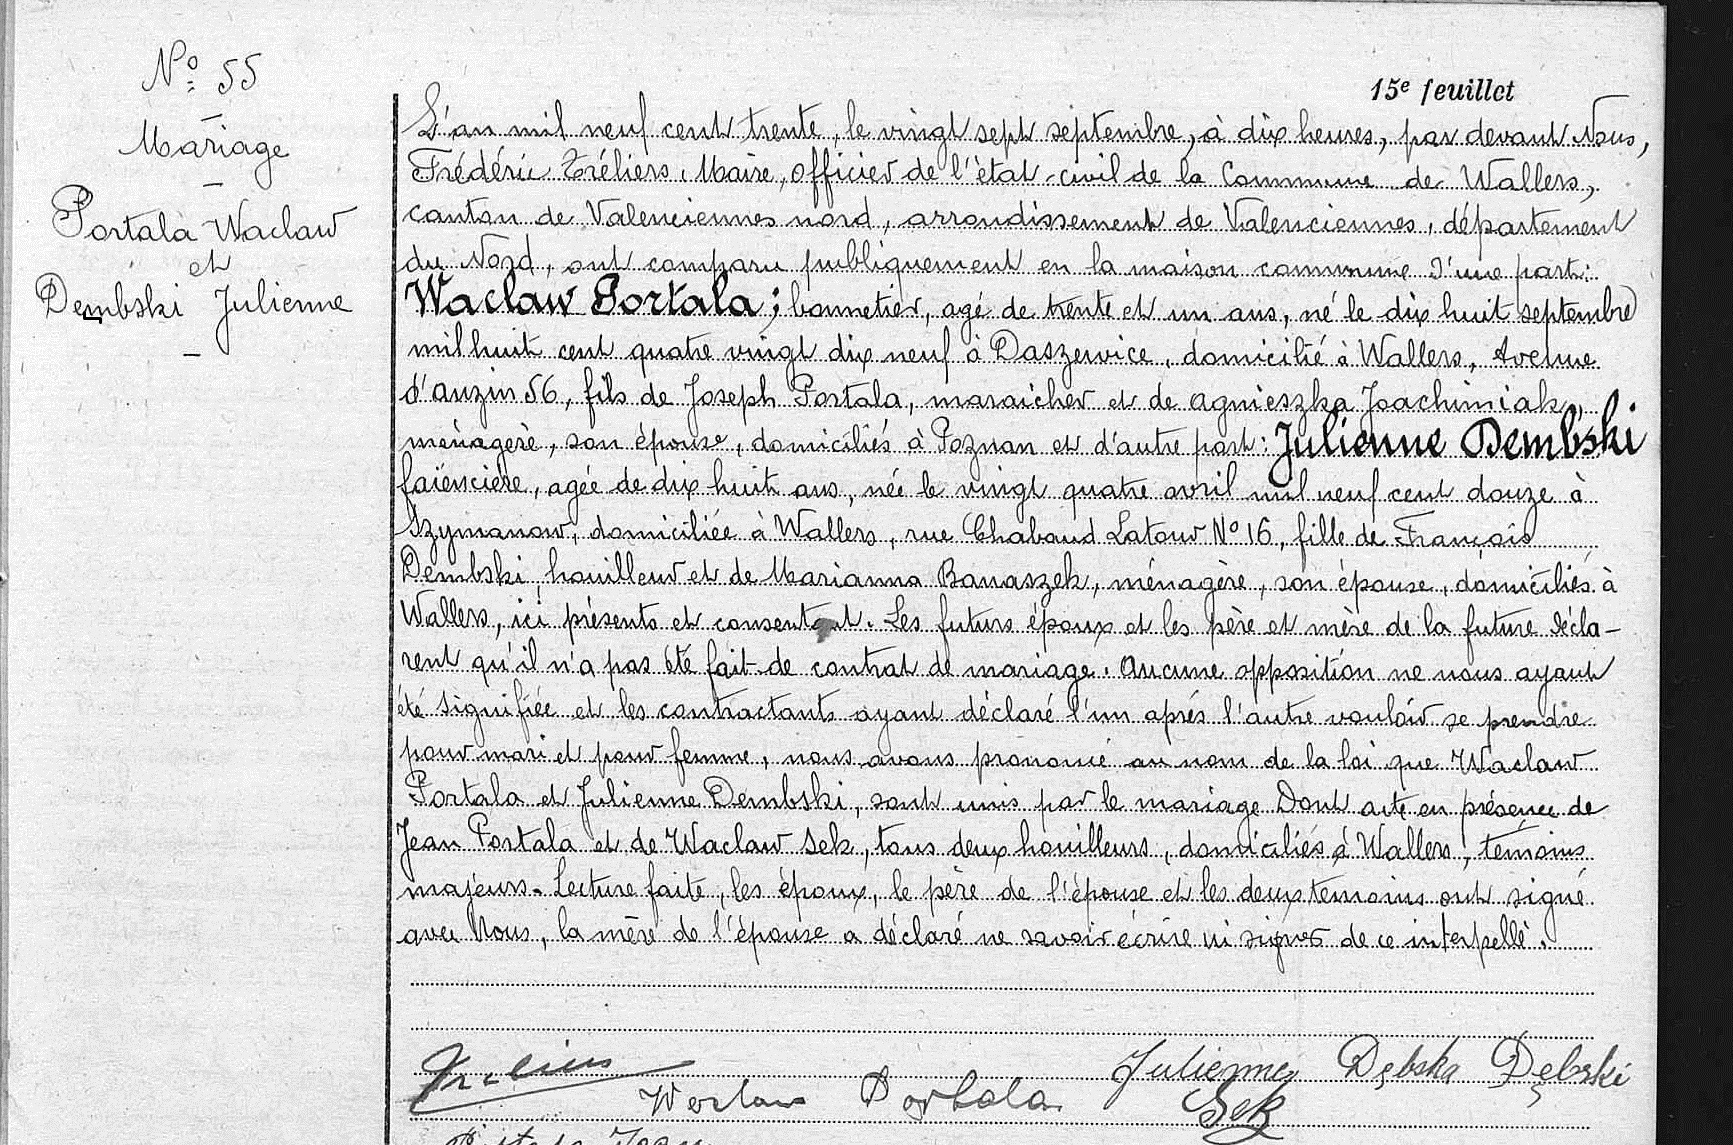 15e feuillet
No 55
Mariage
Portala Waclaw
et
Dembski Julienne
L'an mil neuf cent trente, le vingt sept septembre, à dix heures, par devant Nous,
Frédéric Tréliers, Maire, officier de l'état-civil de la Commune de Wallers,
canton de Valenciennes nord, arrondissement de Valenciennes, département
du Nord, ont comparu publiquement en la maison commune d'une part:
Waclaw Portala; bonnetier, agé de trente et un ans, né le dix huit septembre
mil huit cent quatre vingt dix neuf à Daszewice, domicilié à Wallers, Avenue
d'anzin 56, fils de Joseph Portala, maraicher et de agnieszka Joachimiak,
ménagère, son épouse, domiciliés à Poznan et d'autre part: Julienne Dembski
faïencière, agée de dix huit ans, née le vingt quatre avril mil neuf cent douze à
Szymanow, domiciliée à Wallers, rue Chabaud Latour No 16, fille de François
Dembski, houilleur et de Marianna Banaszek, ménagère, son épouse, domiciliés à
Wallers, ici présents et consentant. Les futurs époux et les père et mère de la future décla-
rent qu'il n'a pas été fait de contrat de mariage. Aucune opposition ne nous ayant
été signifiée et les contractants ayant déclaré l'un aprés l'autre vouloir se prendre
pour mari et pour femme, nous avons prononcé au nom de la loi que Waclaw
Portala et Julienne Dembski, sont unis par le mariage Dont acte en présence de
Jean Portala et de Waclaw Sek, tous deux houilleurs, domiciliés à Wallers, témoins
majeurs. Lecture faite, les époux, le père de l'épouse et les deux temoins ont signé
avec Nous, la mère de l'épouse a déclaré ne savoir écrire ni signer de ce interpellé.
Julienne Dębska Dębski
Portala Sek
Jean